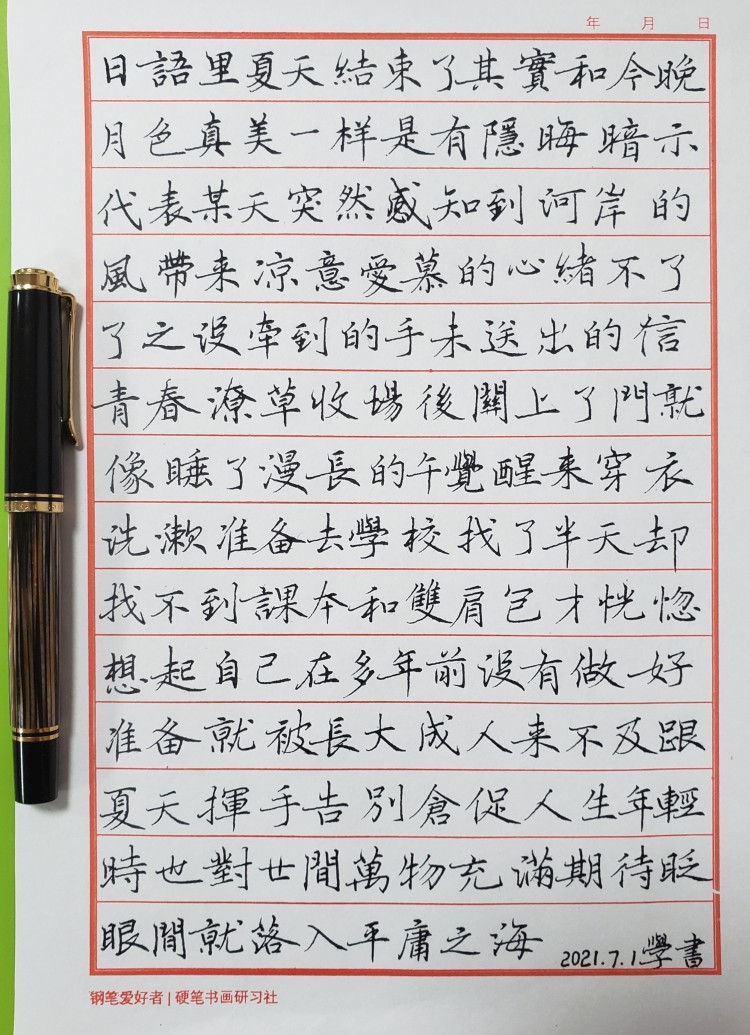 年 月 日
日語里夏天結束了其實和今晚
月色真美一样是有隱晦暗示
代表某天突然感知到河岸的
風帶来凉意愛慕的心緒不了
了之没牵到的手未送出的信
青春潦草收場後關上了門就
像睡了漫長的午覺醒来穿衣
洗漱准备去學校找了半天却
找不到課本和雙肩包才恍惚
想起自己在多年前没有做好
准备就被長大成人来不及跟
夏天揮手告別倉促人生年輕
時也對世間萬物充滿期待眨
眼間就落入平庸之海
2021.7.1學書
钢笔爱好者|硬笔书画研习社